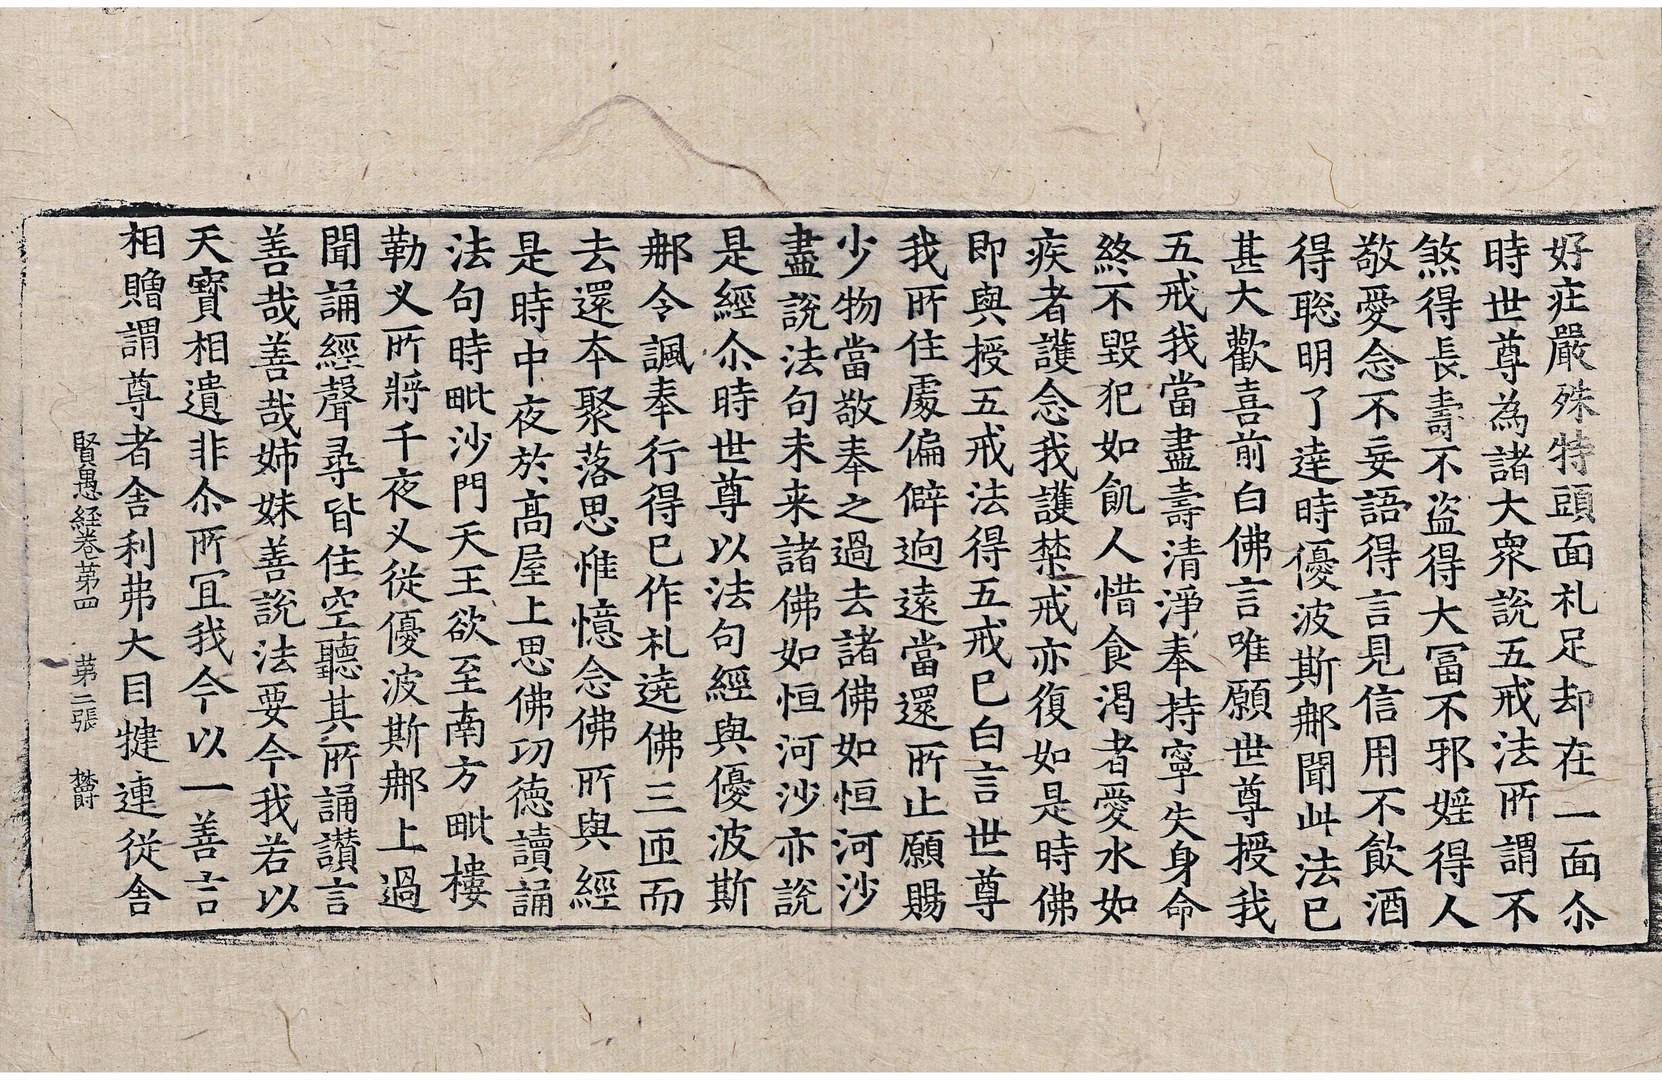 好庄嚴殊特頭面礼足却在一面尒
時世尊為諸大衆說五戒法所謂不
煞得長壽不盗得大冨不邪婬得人
敬愛念不妄語得言見信用不飲酒
得聡明了達時優波斯𨚗聞此法已
甚大歡喜前白佛言唯願世尊授我
五戒我當盡壽清淨奉持寧失身命
終不毀犯如飢人惜食渴者愛水如
疾者護念我護禁戒亦復如是時佛
即與授五戒法得五戒已白言世尊
我所住處偏僻逈遠當還所止願賜
少物當敬奉之過去諸佛如恒河沙
盡說法句未来諸佛如恒河沙亦說
是經尒時世尊以法句經與優波斯
𨚗令諷奉行得已作礼遶佛三匝而
去還夲聚落思惟憶念佛所與經
是時中夜於髙屋上思佛㓛徳讀誦
法句時毗沙門天王欲至南方毗樓
勒义所將千夜义從優波斯𨚗上過
聞誦經聲尋皆住空聽其所誦讃言
善哉善哉姉妹善說法要今我若以
天寶相遺非尒所冝我今以一善言
相贈謂尊者舍利弗大目犍連從舍
賢愚経卷第四　第二張　欝